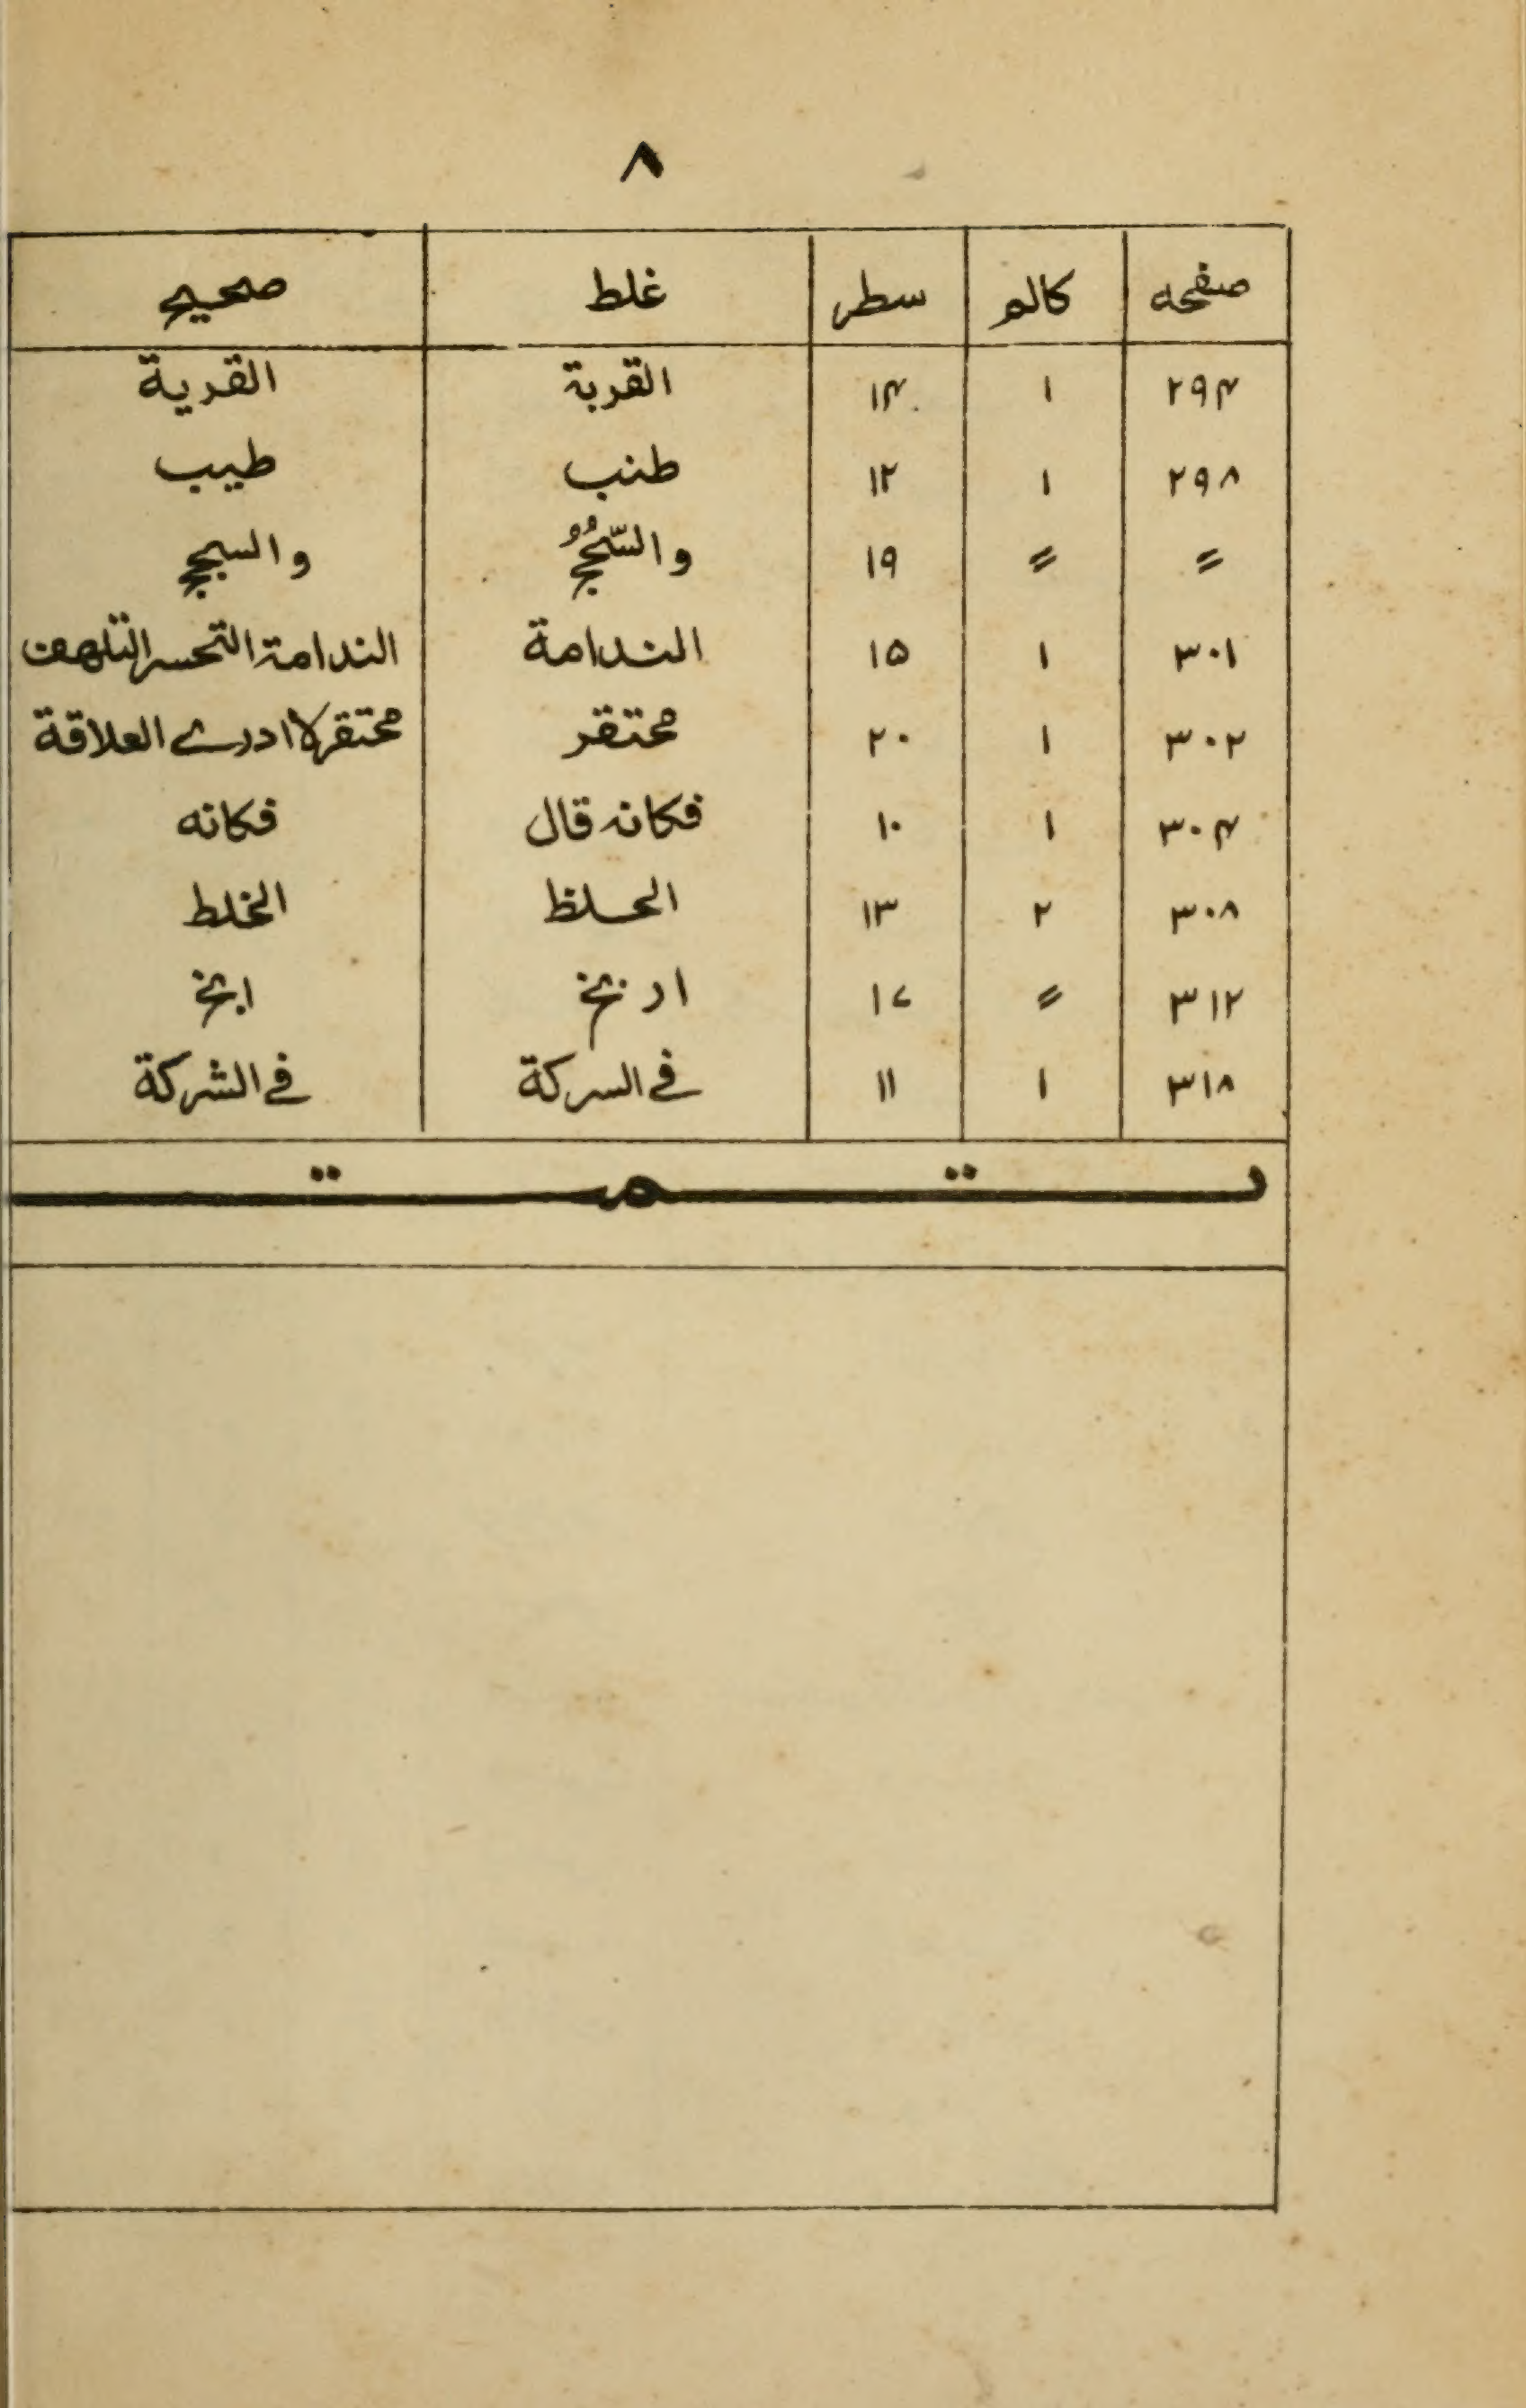 ۸
صفحه کالم سطر غلط صحیح
۲۹۴ ۱ ۱۴ القربة القریة
۲۹۸ ۱ ۱۲ طنب طیب
〃 〃 ۱۹ والسجج
۳۰۱ ۱ ۱۵ الندامة الندامة التحسر التلهف
۳۰۲ ۱ ۲۰ محتقر محتقر لا ادرے العلاقة
۳۰۴ ۱ ۱۰ فکانه قال فکانه
۳۰۸ ۲ ۱۳ الحلظ الخلط
۳۱۲ 〃 ۱۷
۳۱۸ ۱ ۱۱ فے السرکة فے الشرکة
تمت